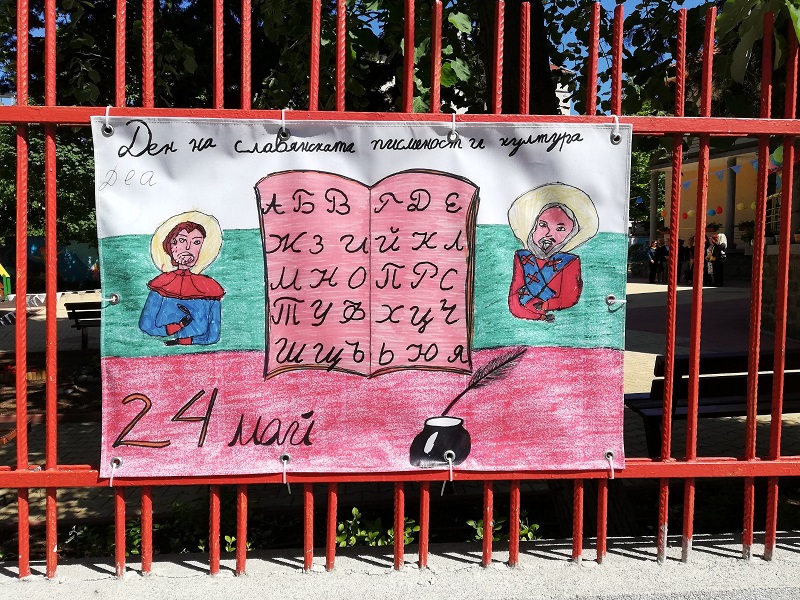 Ден на славянската писменост и култура
Деа
А Б В Г Д Е
Ж З И Й К Л
М Н О П Р С
Т У Ф Х Ц Ч
Ш Щ Ъ Ь Ю Я
24 май